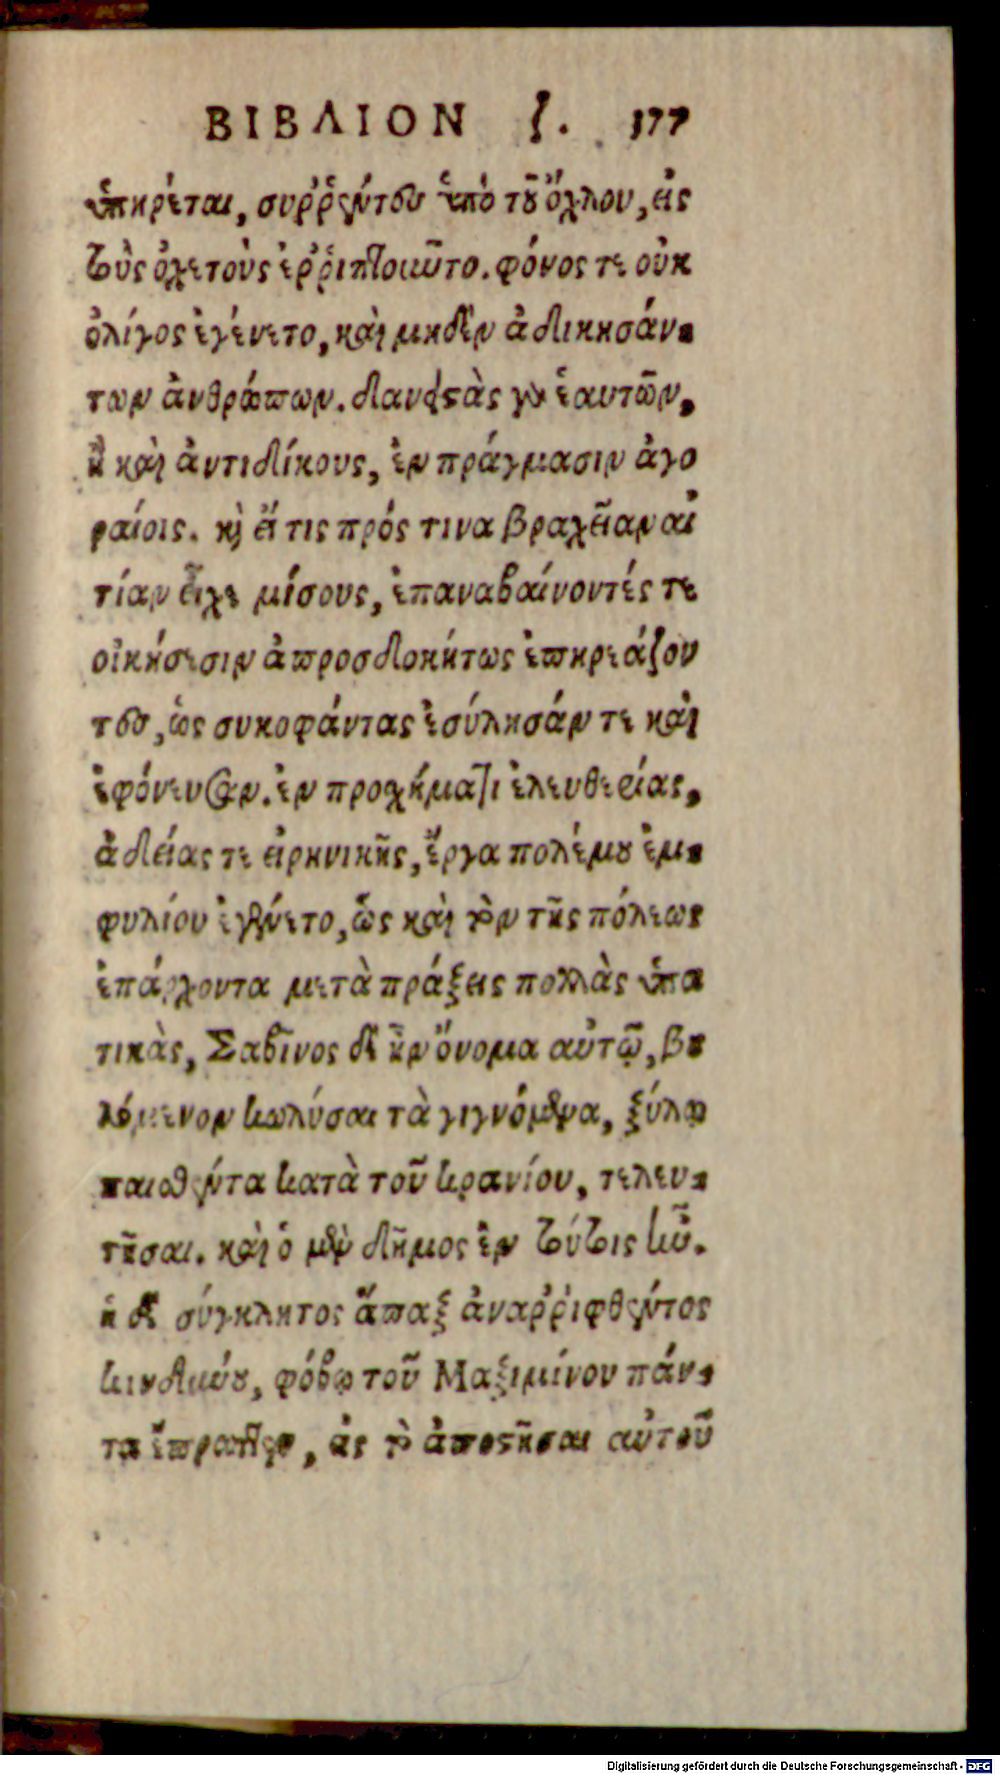 ΒΙΒΛΙΟΝ ζ. 177
ὑπηρέται, συρρέντες ὑπὸ τοῦ ὄχλου, εἰς
τοὺς ὀχετοὺς ἐῤῥιπτοιῶτο. φόνος τε οὐκ
ὀλίγος ἐγένετο, καὶ μηδὲν ἀδικησάν-
των ἀνθρώπων. δανεστὰς γὰρ ἑαυτῶν,
ἢ καὶ ἀντιδίκους, ἐν πράγμασιν ἀγο
ραίοις. καὶ εἴ τις πρός τινα βραχεῖαν αἰ
τίαν εἶχε μίσους, ἐπαναβαίνοντές τε
οἰκήσεσιν ἀπροσδοκήτως ἐπηρεάζον
τες, ὡς συκοφάντας ἐσύλησάν τε καὶ
ἐφόνευσαν. ἐν προσχήματι ἐλευθερίας,
ἀδείας τε εἰρηνικῆς, ἔργα πολέμου ἐμ-
φυλίου ἐγένετο, ὡς καὶ τὸν τῆς πόλεως
ἐπάρχοντα μετὰ πράξεις πολλὰς ὑπα
τικὰς, Σαβῖνος δὲ ἦν ὄνομα αὐτῷ, βου
λόμενον κωλύσαι τὰ γιγνόμενα, ξύλῳ
παισθέντα κατὰ τοῦ κρανίου, τελευ-
τῆσαι. καὶ ὁ μὲν δῆμος ἐν τούτοις ἦν.
ἡ δὲ σύγκλητος ἅπαξ ἀναῤῥιφθέντος
κινδύνου, φόβῳ τοῦ Μαξιμίνου πάν-
τα ἔπραττεν, εἰς τὸ ἀποστῆσαι αὐτοῦ
Digitalisierung gefördert durch die Deutsche Forschungsgemeinschaft - DFG